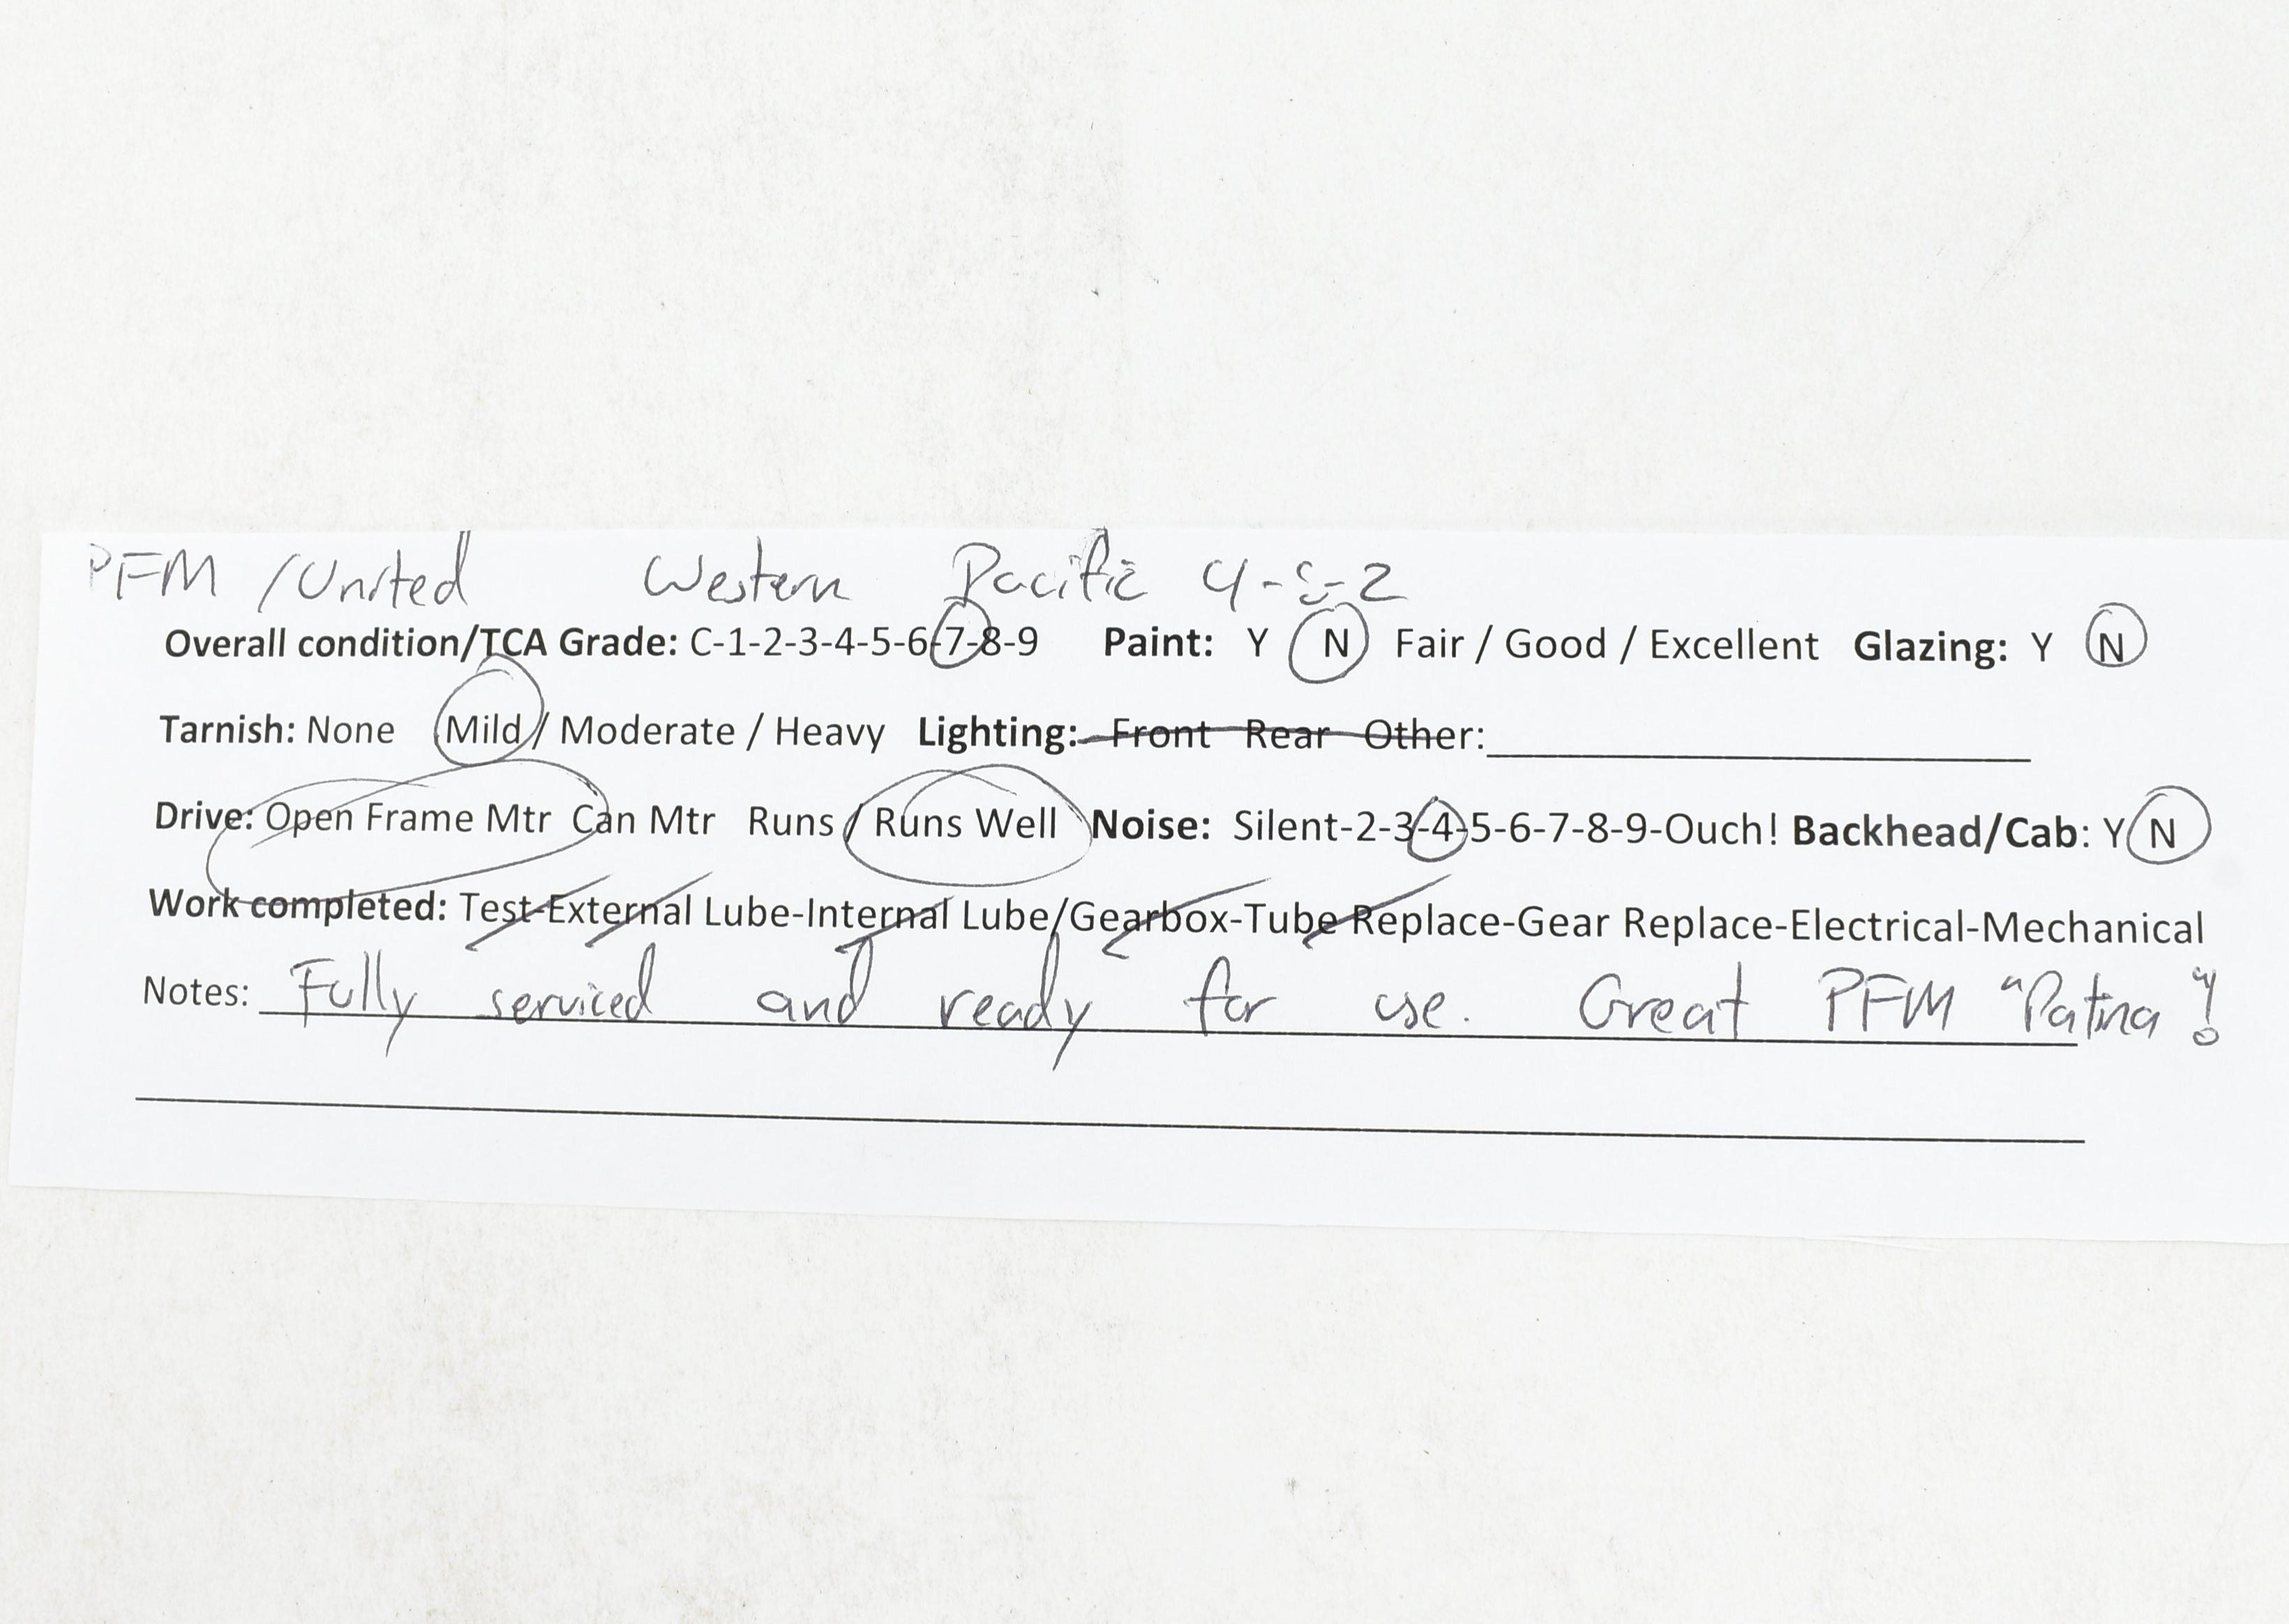 PFM /United Western Pacific 4-8-2
Overall condition/TCA Grade: C-1-2-3-4-5-6-7-8-9 Paint: Y N Fair / Good / Excellent Glazing: Y N
Tarnish: None Mild / Moderate / Heavy Lighting: Front Rear Other:
Drive: Open Frame Mtr Can Mtr Runs / Runs Well Noise: Silent-2-3-4-5-6-7-8-9-Ouch! Backhead/Cab: Y N
Work completed: Test-External Lube-Internal Lube/Gearbox-Tube Replace-Gear Replace-Electrical-Mechanical
Notes: Fully serviced and ready for use. Great PFM "Patina"!